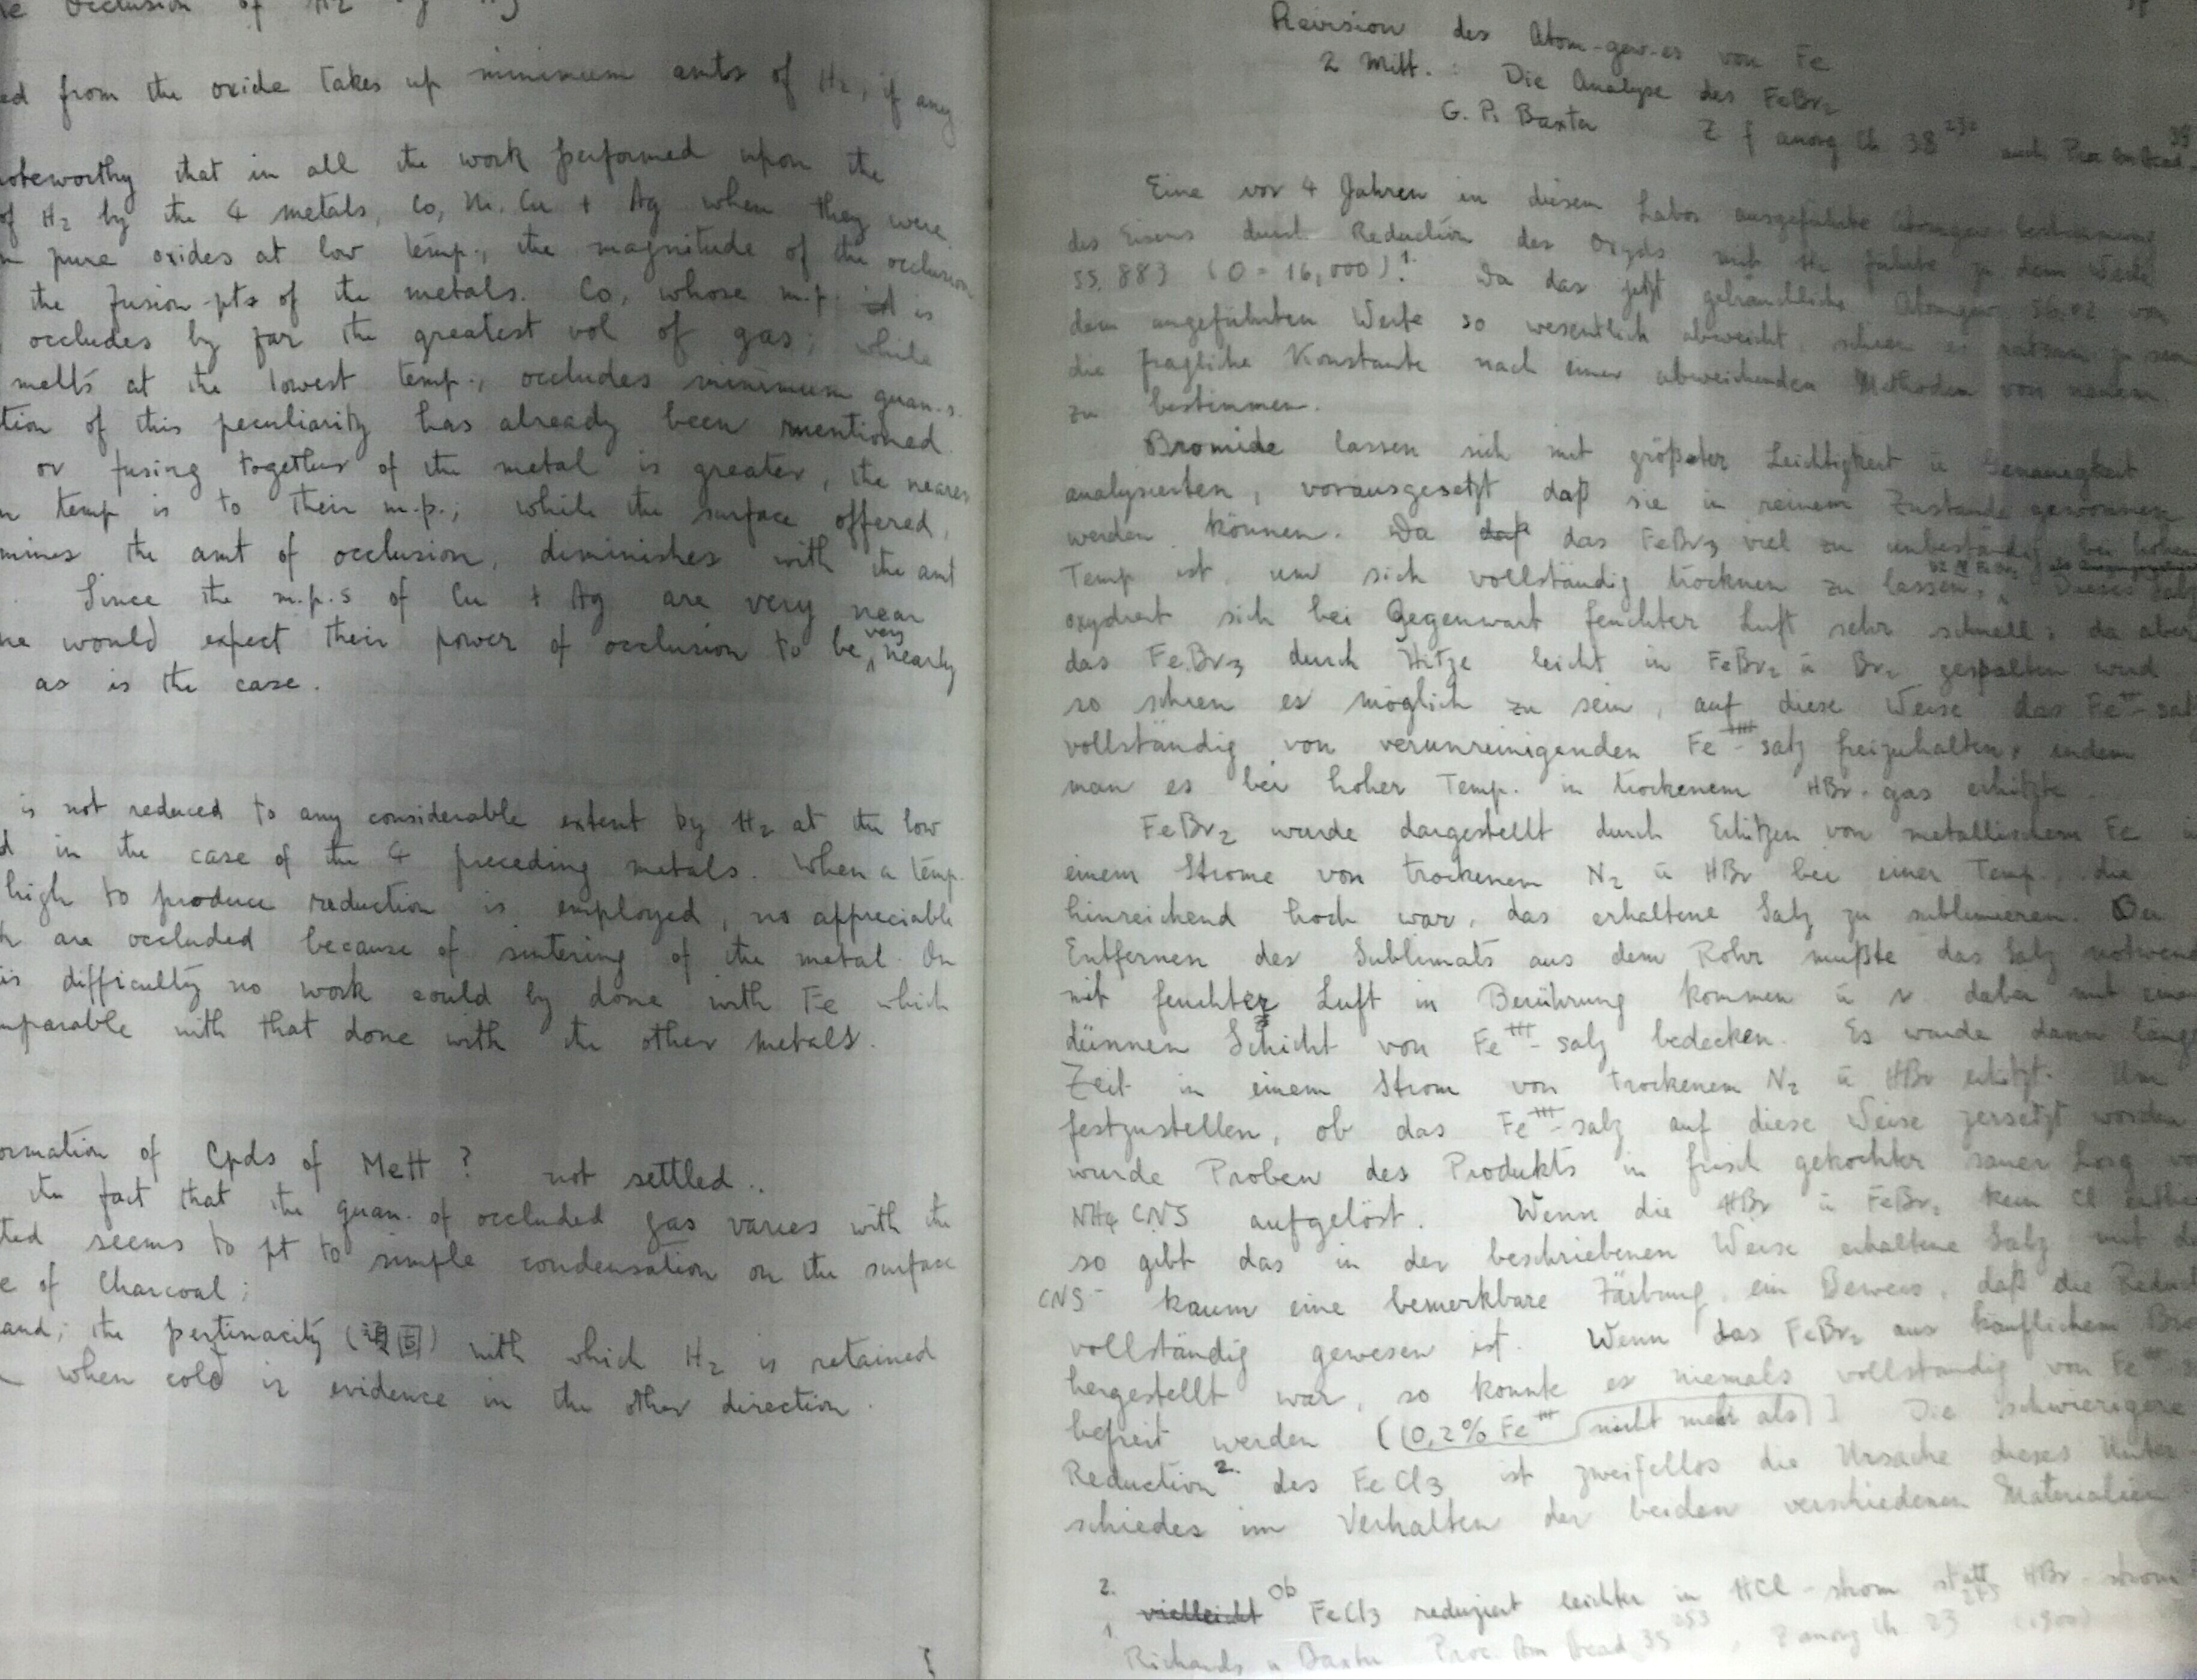 Occlusion of H2 by Ag
ed from the oxide takes up minimum amts of H2, if any
noteworthy that in all the work performed upon the
of H2 by the 4 metals, Co, Ni, Cu + Ag when they were
pure oxides at low temp., the magnitude of the occlusion
the fusion-pts of the metals. Co, whose m.p. is
occludes by far the greatest vol of gas; while
melts at the lowest temp., occludes minimum quan.s.
tion of this peculiarity has already been mentioned
or fusing together of the metal is greater, the nearer
temp is to their m.p.; while the surface offered,
mines the amt of occlusion, diminishes with the amt
Since the m.p.s of Cu + Ag are very near
ne would expect their power of occlusion to be very nearly
as is the case.
is not reduced to any considerable extent by H2 at the low
d in the case of the 4 preceding metals. When a temp.
high to produce reduction is employed, no appreciable
are occluded because of sintering of the metal. On
is difficulty no work could by done with Fe which
mparable with that done with the other metals.
ormation of Cpds of MeH? not settled..
the fact that the quan. of occluded gas varies with the
ted seems to pt to simple condensation on the surface
e of Charcoal;
and; the pertinacity (頑固) with which H2 is retained
when cold is evidence in the other direction.
Revision des Atom-gew-es von Fe
2 Mitt.: Die Analyse des FeBr2
G. P. Baxter Z f anorg Ch 38 232 auch Proc Am Acad. 39
Eine vor 4 Jahren in diesem Labor ausgeführte Atomgew bestimmung
des Eisens durch Reduction des Oxyds mit H2 führte zu dem Werte
55.883 (O = 16,000)1. Da das jetzt gebräuchliche Atomgew 56.02 von
dem angeführten Werte so wesentlich abweicht, schien es ratsam zu sein
die fragliche Konstante nach einer abweichenden Methoden von neuem
zu bestimmen.
Bromide lassen sich mit größter Leichtigkeit ū Genauegkeit
analysierten, vorausgesetzt daß sie in reinem Zustande gewonnen
werden können. Da daß das FeBr3 viel zu unbeständig bei hohen
Temp ist, um sich vollständig trocknen zu lassen, Dieses Salz
oxydiert sich bei Gegenwart feuchter Luft sehr schnell; da aber
das FeBr3 durch Hitze leicht in FeBr2 ū Br2 gespalten wird
so schien es möglich zu sein, auf diese Weise das Fe++-salz
vollständig von verunreinigenden Fe+++-salz freizuhalten, indem
man es bei hoher Temp. in trockenem HBr-gas erhitzte.
FeBr2 wurde dargestellt durch Erhitzen von metallischem Fe
einem Strome von trockenem N2 ū HBr bei einer Temp., die
hinreichend hoch war, das erhaltene Salz zu sublimieren. Bei
Entfernen des Sublimats aus dem Rohr mußte das Salz notwend
mit feuchter Luft in Berührung kommen ū dabei mit einer
dünnen Schicht von Fe+++-salz bedecken. Es wurde dann länge
Zeit in einem Strom von trockenem N2 ū HBr erhitzt. Um
festzustellen, ob das Fe+++-salz auf diese Weise zersetzt worden
wurde Proben des Produkts in frisch gekochter sauer Lösg
NH4CNS aufgelöst. Wenn die HBr ū FeBr2 kein Cl enthie
so gibt das in der beschriebenen Weise erhaltene Salz mit
CNS- kaum eine bemerkbare Färbung, ein Beweis, daß die Reduct
vollständig gewesen ist. Wenn das FeBr2 aus käuflichem Bro
hergestellt war, so konnte es niemals vollständig von Fe+++
befreit werden [(0,2% Fe+++ nicht mehr als)] Die schwierigere
Reduction2. des FeCl3 ist zweifellos die Ursache dieses Unter-
schiedes im Verhalten der beiden verschiedenen Materialien
2. vielleicht Ob FeCl3 reduziert leichter in HCl-strom statt HBr-strom
1 Richards u Baxter Proc. Am Acad 35 253, Z anorg Ch. 23 (1900)